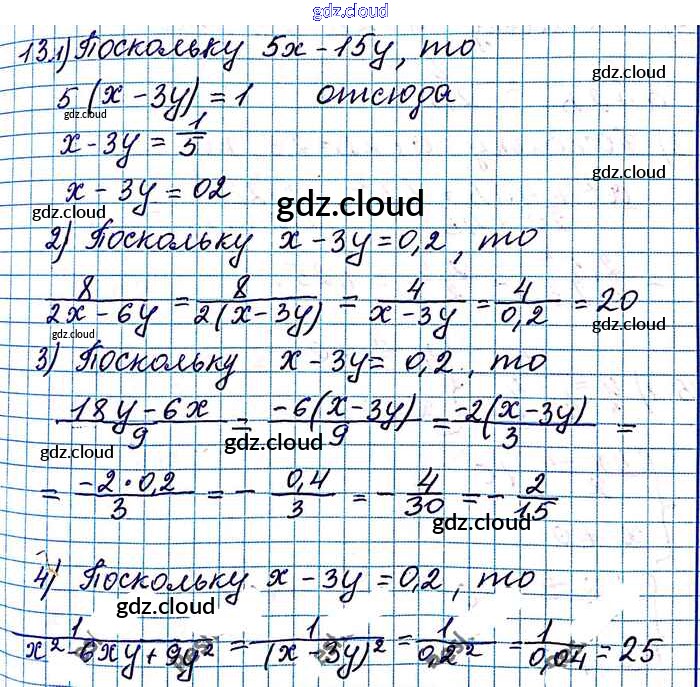 gdz.cloud
13.1) Поскольку 5x - 15y, то
gdz.cloud
5 (x - 3y) = 1 отсюда
gdz.cloud
x - 3y = 1/5
gdz.cloud
x - 3y = 02
gdz.cloud gdz.cloud
2) Поскольку x - 3y = 0,2, то
gdz.cloud
8/(2x - 6y) = 8/(2(x - 3y)) = 4/(x - 3y) = 4/0,2 = 20
gdz.cloud gdz.cloud
3) Поскольку x - 3y = 0,2, то
(18y - 6x)/9 = (-6(x - 3y))/9 = (-2(x - 3y))/3 =
gdz.cloud gdz.cloud
= (-2·0,2)/3 = - 0,4/3 = - 4/30 = - 2/15
gdz.cloud
4) Поскольку x - 3y = 0,2, то
gdz.cloud
1/(x² - 6xy + 9y²) = 1/(x - 3y)² = 1/0,2² = 1/0,04 = 25